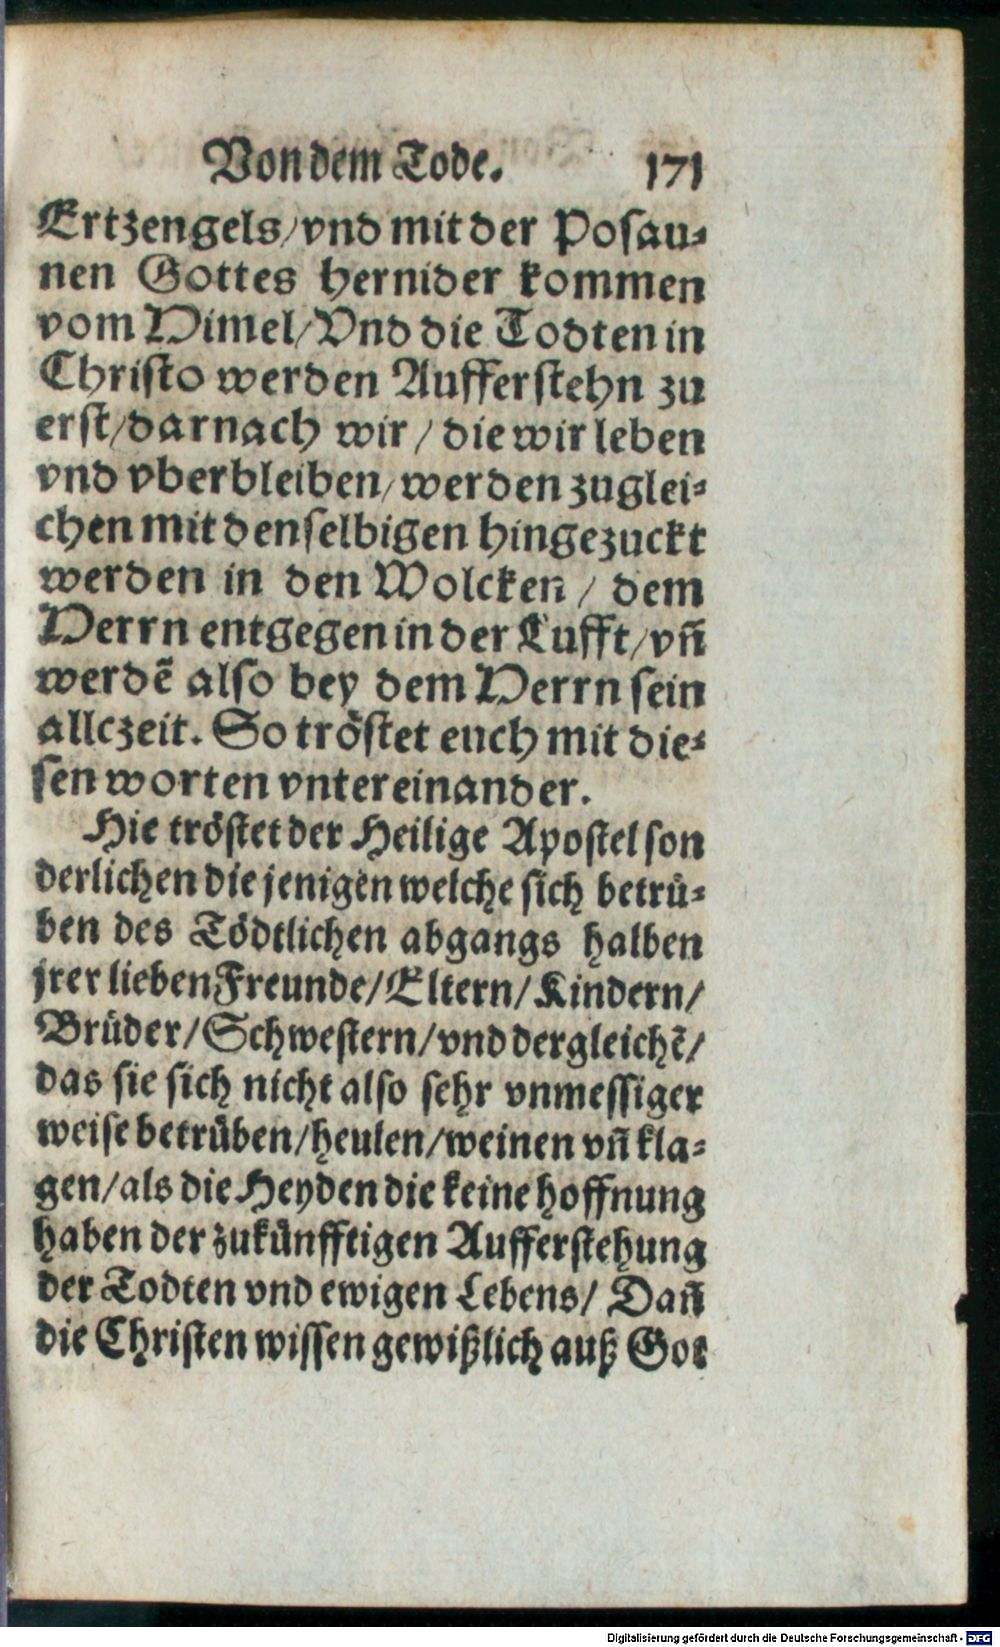 Von dem Tode. 171
Ertzengels/vnd mit der Posau⸗
nen Gottes hernider kommen
vom Himel/Vnd die Todten in
Christo werden Aufferstehn zu
erst/darnach wir / die wir leben
vnd vberbleiben/werden zuglei⸗
chen mit denselbigen hingezuckt
werden in den Wolcken / dem
Herrn entgegen in der Lufft/vñ
werdẽ also bey dem Herrn sein
allczeit. So tröstet euch mit die⸗
sen worten vntereinander.
Hie tröstet der Heilige Apostel son
derlichen die jenigen welche sich betrü⸗
ben des Tödtlichen abgangs halben
jrer lieben Freunde/Eltern/Kindern/
Brüder/Schwestern/vnd dergleichẽ/
das sie sich nicht also sehr vnmessiger
weise betrüben/heulen/weinen vñ kla⸗
gen/als die Heyden die keine hoffnung
haben der zukünfftigen Aufferstehung
der Todten vnd ewigen Lebens/ Dañ
die Christen wissen gewißlich auß Got
Digitalisierung gefördert durch die Deutsche Forschungsgemeinschaft - DFG